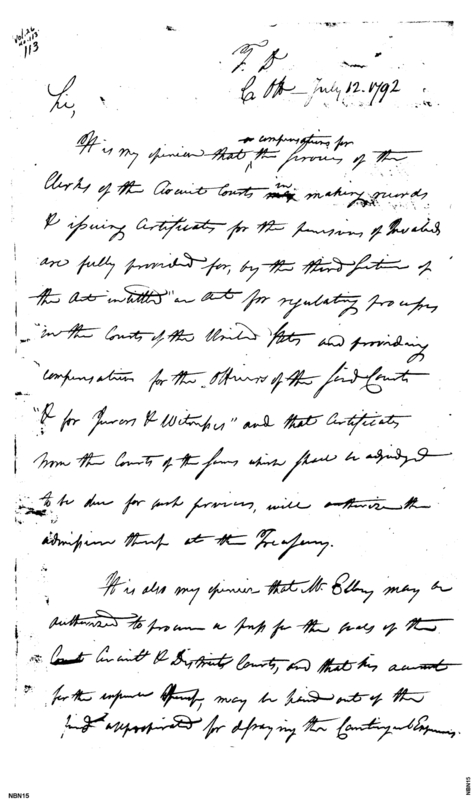 Vol. 26
No. 113
113
T. D
C. Off — July 12. 1792
Sir,
compensations for
It is my opinion that the services of the
Clerks of the Circuit Courts in making records
& issuing Certificates for the pensions of Invalids
are fully provided for, by the third section of
the Act intitled "an Act for regulating processes
in the Courts of the United States and providing
compensations for the Officers of the said Courts
"& for Jurors & Witnesses" and that Certificates
from the Courts of the sums which shall be adjudged
to be due for such services, will authorize the
admission thereof at the Treasury.
It is also my opinion that Mr. Ellery may be
authorized to procure a press for the seals of the
Court Circuit & District Courts, and that his account
for the expence thereof, may be paid out of the
fund appropriated for defraying the Contingent Expences.
NBN15
NBN15